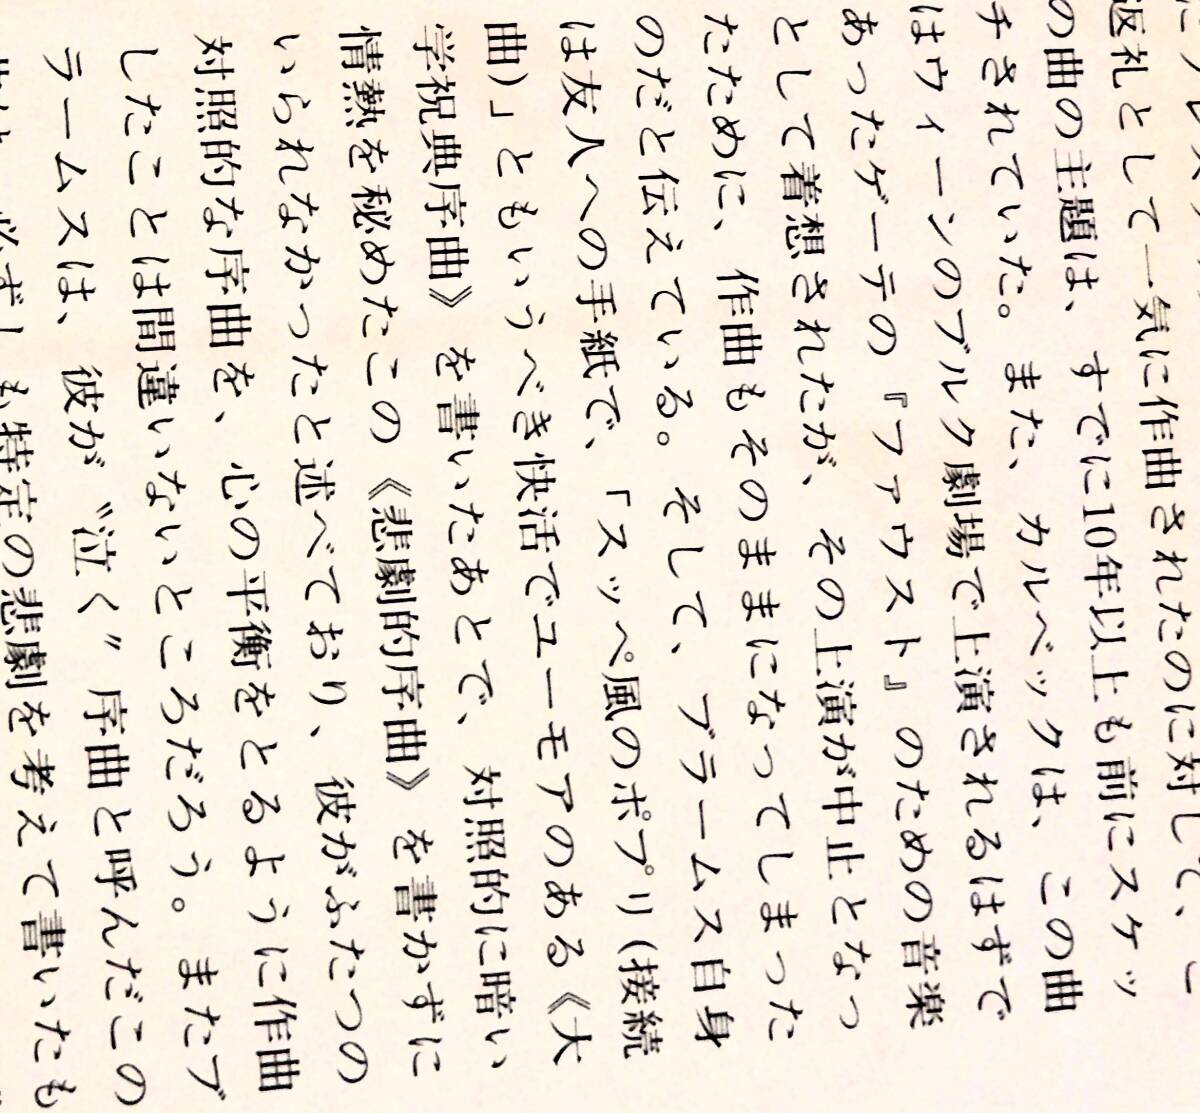 返礼として一気に作曲されたのに対して、こ
の曲の主題は、すでに10年以上も前にスケッ
チされていた。また、カルベックは、この曲
はウィーンのブルク劇場で上演されるはずで
あったゲーテの『ファウスト』のための音楽
として着想されたが、その上演が中止となっ
たために、作曲もそのままになってしまった
のだと伝えている。そして、ブラームス自身
は友人への手紙で、「スッペ風のポプリ(接続
曲)」ともいうべき快活でユーモアのある《大
学祝典序曲》を書いたあとで、対照的に暗い
情熱を秘めたこの《悲劇的序曲》を書かずに
いられなかったと述べており、彼がふたつの
対照的な序曲を、心の平衡をとるように作曲
したことは間違いないところだろう。またブ
ラームスは、彼が〝泣く〞序曲と呼んだこの
必ずしも特定の悲劇を考えて書いたも